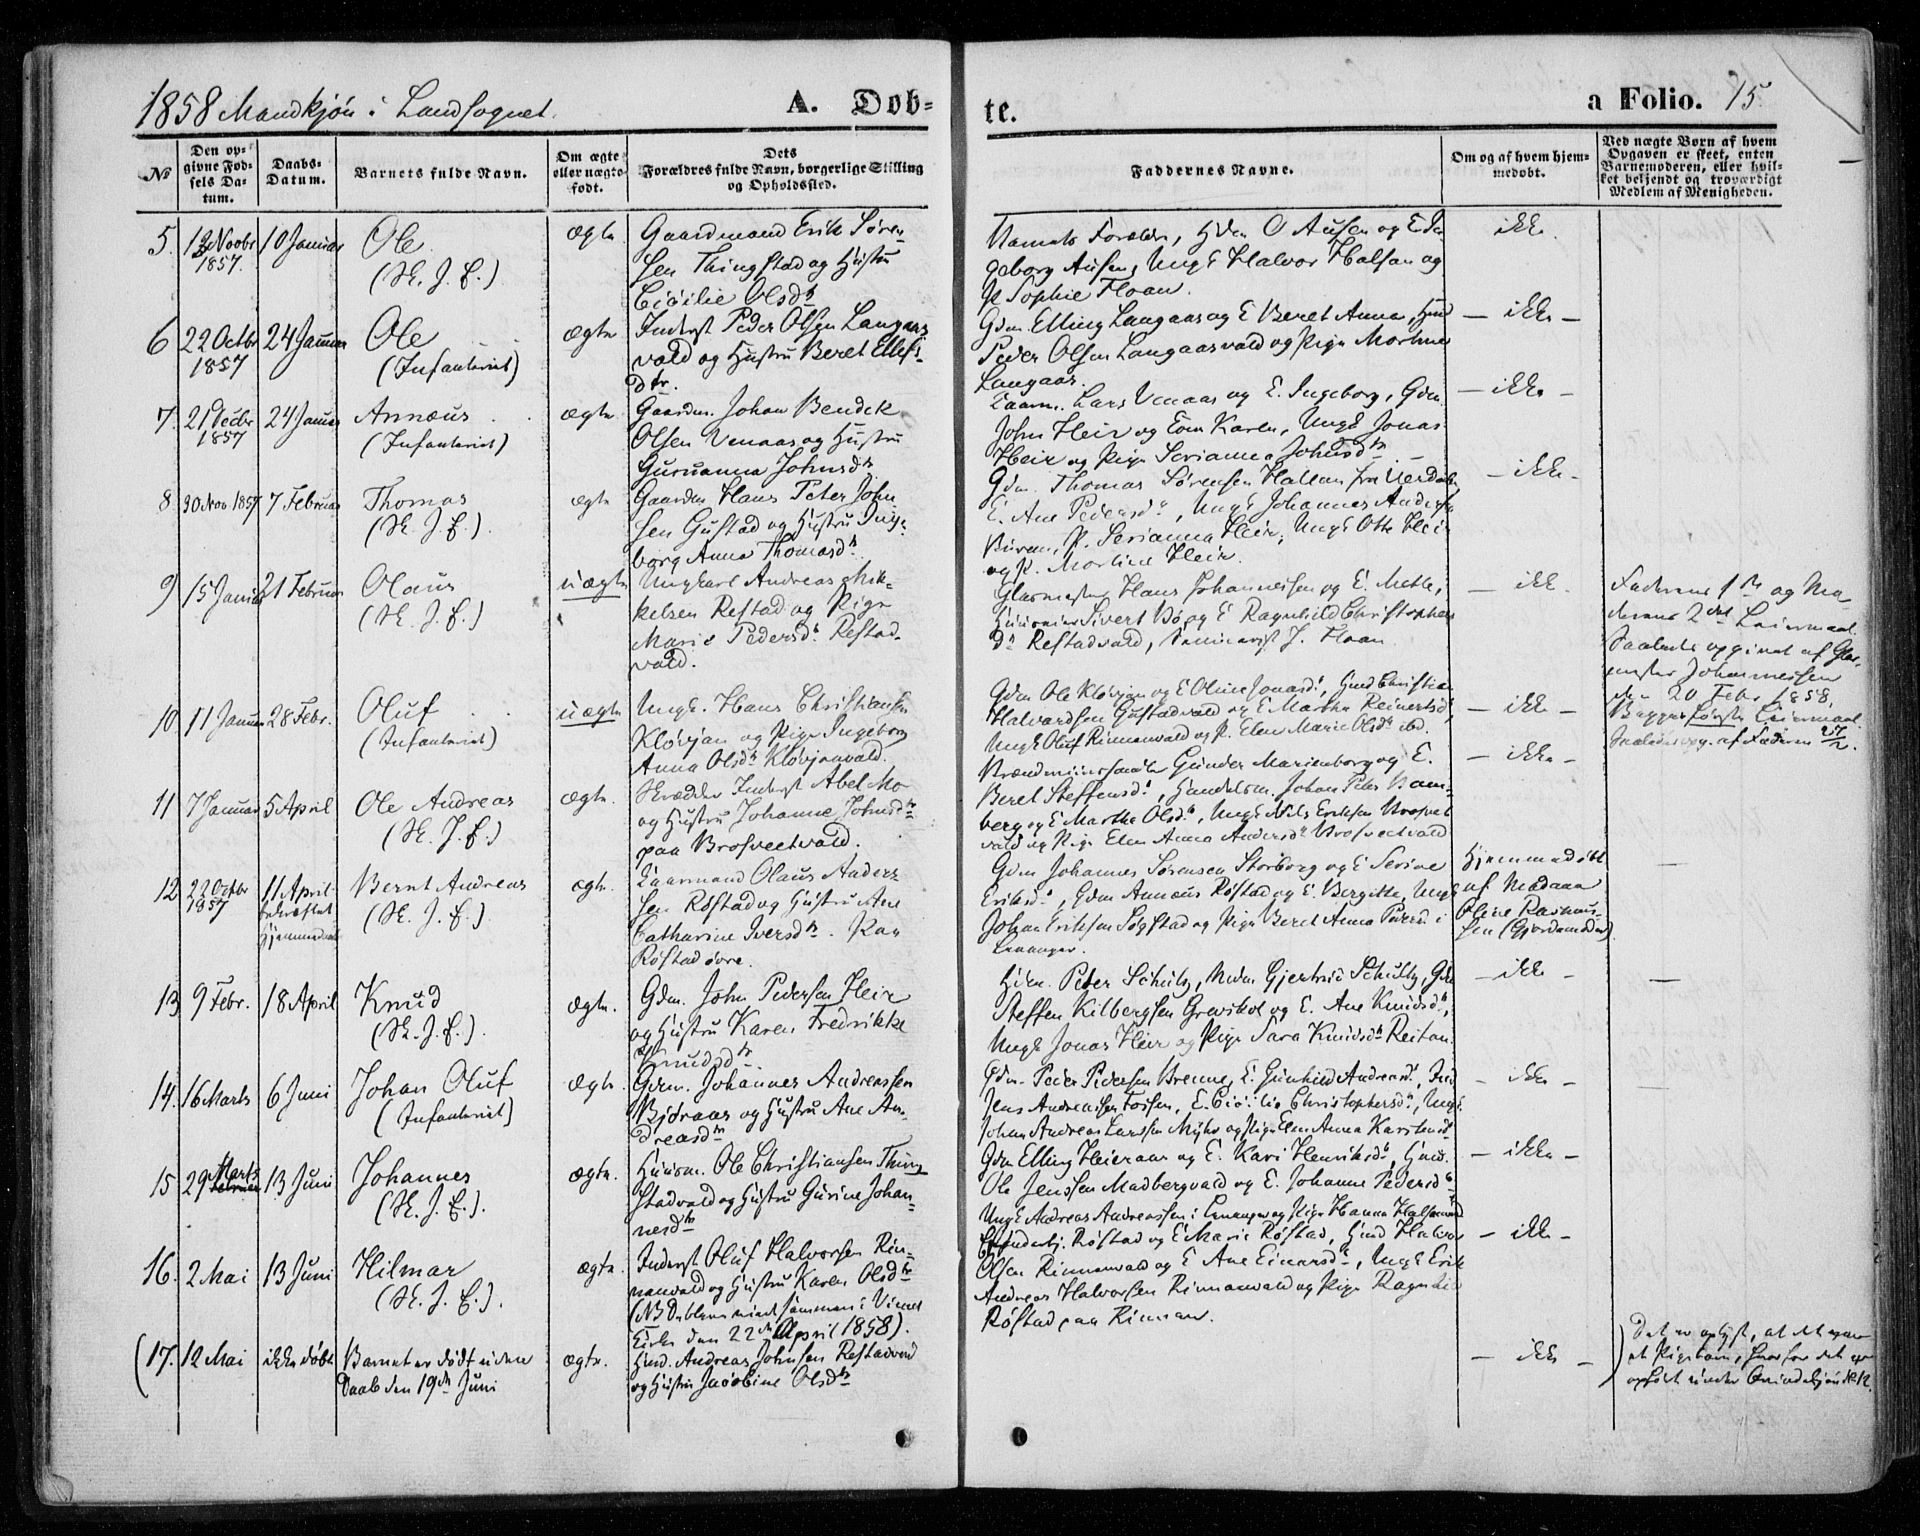 1858 Mandkjön i Landsognet.
A. Dob-
te.
a Folio. 75
No
Den op-
givne Fød-
sels Da-
tum.
Daabs-
Datum.
Barnets fulde Navn.
Om ægte
eller uægte
født.
Dets
Forældres fulde Navn, borgerlige Stilling
og Opholdssted.
Faddernes Navne.
Om og af hvem hjem-
medøbt.
Ved uægte Børn af hvem
Opgaven er skeet, enten
Barnemoderen, eller hvil-
ket bekjendt og troværdigt
Medlem af Menigheden.
5. 12 Novbr 1857. 10 Januar Ole (Sk. J. E.) ægte
Gaardmand Erik Søren-
sen Thingstad og Hustru
Cicilie Olsdtr
Forældre, Gdm O Ausen og E In-
geborg Ausen, Ungk Halvor Halsan og
P Sophie Floan.
ikke.
6 22 Octbr 1857 24 Januar Ole (Infanteriet) ægte
Inderst Peder Olsen Langaas-
vald og Hustru Beret Ellefs-
dtr.
Gdm. Elling Langaas og E Beret Anna, Hmd
Peder Olsen Langaasvald og Pige
Langaas.
– ikke –
7. 21 Decbr 1857 24 Januar Annæus (Infanteriet) ægte
Gaardm. Johan Bendik
Olsen Venaas og Hustru
Guruanna Johnsdtr
Lars Venaas og E. Ingeborg, Gdm.
John Heir og Karen, Ungk Jonas
Heir og Pige Serianna Johnsdtr
– ikke –
8 30 Nov 1857 7 Februar Thomas (Sk. J. E.) ægte
Gaardm Hans Peter John
sen Gustad og Hustru Inge-
borg Anna Thomasdtr
Gdm. Thomas Sørensen Hallem fra Verdalen,
E. Ane Pedersdtr, Ungk Johannes Anders
P. Serianna Heir, Ungk Otte Heir
og P. Martine Heir.
– ikke –
9 15 Januar 21 Februar Olaus (Sk. J. E.) uægte
Ungkarl Andreas Mik-
kelsen Restad og Pige
Marie Pedersdtr Restad-
vald.
Glasmester Hans Johannesen og E. Mette,
Huusmand Sivert Bø og E Ragnhild Christophers
dtr Restadvald, Seminarist J. Floan
– ikke
Faderens 1ste og Mo-
derens 2det Leiermaal.
Saaledes opgivet af Glas-
mester Johannessen
den 20 Febr 1858.
10 11 Januar 28 Febr. Oluf (Infanteriet) uægte
Ungk. Hans Christiansen
Kløvjan og Pige Ingeborg
Anna Olsdtr Kløvjanvald.
Gdm Ole Kløvjan og E Oline Jonasdtr, Hmd Christian
Halvardsen Gustadvald og E Martha Reinertsdtr,
Ungk Oluf Rinnanvald og P. Elen Marie Olsdtr ibd.
– ikke –
Begges første Leiermaal.
Saaledes opg. af Faderen 27/2.
11 7 Januar 5 April Ole Andreas (Sk. J. E.) ægte.
Skrædder Inderst Abel Mo
og Hustru Johanne Johnsdtr
paa Brosveetvald.
Gunder Marienborg og E.
Beret Steffensdtr, Handelsm. Johan Peter Bam-
berg og E Martha Olsdtr, Ungk Nils Eriksen
vald og Pige Elen Anna Andersdtr Brosveetvald
– ikke –
12 22 Octbr 1857 11 April bekræftet Hjemmedaab Bernt Andreas (Sk. J. E.) ægte.
Gaardmand Olaus Anders
sen Røstad og Hustru Ane
Catharine Iversdtr. Paa
Røstad øvre.
Gdm Johannes Sørensen Storborg og E Serine
Eriksdtr, Gdm Annæus Røstad og E. Bergitte, Ungk
Johan Eriksen Søgstad og Pige Beret Anna i
Levanger.
Hjemmedøbt
af Madam
Oline Rasmus-
sen (Gjordemoder).
13 9 Febr. 18 April Knud (Sk. J. E.) ægte.
Gdm. John Pedersen Heir
og Hustru Karen Fredrikke
Knudsdtr.
Gdm. Peter Schulz, Mdm Gjertrud Schulz, Gdm
Steffen Kilbergsen Grevskot og E. Ane Knudsdtr,
Ungk Jonas Heir og Pige Sara Knudsdtr Reitan
– ikke –
14. 16 Marts 6 Juni Johan Oluf (Infanteriet) ægte.
Gdm. Johannes Andreassen
Bjøraas og Hustru Ane An-
dreasdtr
Gdm. Peder Pedersen Brenne, E. Gunhild Andreasdtr, Ind
Jens Andreassen Fossen, E. Cicilie Christophersdtr, Ungk
Johan Andreas Larsen Myhr og Pige Elen Anna Karstensdtr
– ikke –
15 29 Marts Februar 13 Juni Johannes (Sk. J. E.) ægte.
Huusm. Ole Christiansen Thing-
stadvald og Hustru Gurine Johan-
nesdtr
Gdm Elling Heieraas og E. Kari Henriksdtr, Hmd.
Ole Jenssen Madbergvald og E. Johanne Pedersdtr
Ungk Andreas Andreassen i Levanger og Pige Hanna
– ikke –
16. 2 Mai 13 Juni Hilmar (Sk. J. E.). ægte.
Inderst Oluf Halvorsen Rin-
nanvald og Hustru Karen Olsdtr
(NB De bleve viede sammen i Vinne
Kirke den 22de April 1858).
Røstad og E Marie Røstad, Hmd Halvor
Olsen Rinnanvald og E Ane Einarsdtr, Ungk Erik
Andreas Halvorsen Rinnanvald og Pige Ragnhild
Røstad paa Rinnan.
– ikke –
(17. 12 Mai ikke døbt Barnet er dødt uden
Daab den 19de Juni ægte.
Hmd. Andreas Johnsen Restadvald
og Hustru Jacobine Olsdtr
– ikke –
Det er oplyst, at det var
et Pigebarn, hvorfor det er
opført under Qvindekjön No 12.